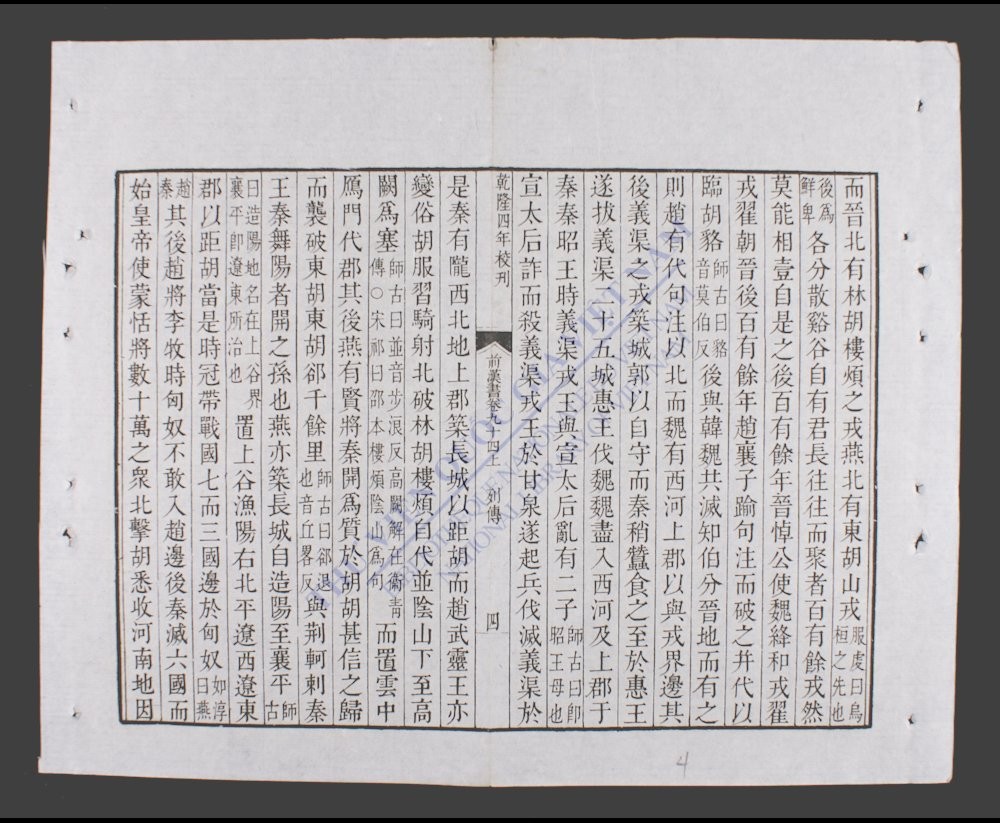 而晉北有林胡樓煩之戎燕北有東胡山戎服虔曰烏桓之先也
後為鮮卑各分散谿谷自有君長往往而聚者百有餘戎然
莫能相壹自是之後百有餘年晉悼公使魏絳和戎翟
戎翟朝晉後百有餘年趙襄子踰句注而破之并代以
臨胡貉師古曰貉音莫伯反後與韓魏共滅知伯分晉地而有之
則趙有代句注以北而魏有西河上郡以與戎界邊其
後義渠之戎築城郭以自守而秦稍蠶食之至於惠王
遂拔義渠二十五城惠王伐魏魏盡入西河及上郡于
秦秦昭王時義渠戎王與宣太后亂有二子師古曰即昭王母也
宣太后詐而殺義渠戎王於甘泉遂起兵伐滅義渠於
乾隆四年校刊
前漢書卷九十四上 列傳
四
是秦有隴西北地上郡築長城以距胡而趙武靈王亦
變俗胡服習騎射北破林胡樓煩自代並陰山下至高
闕為塞師古曰並音步浪反高闕解在衞青傳○宋祁曰邵本樓煩陰山為句而置雲中
鴈門代郡其後燕有賢將秦開為質於胡胡甚信之歸
而襲破東胡東胡卻千餘里師古曰卻退也音丘畧反與荊軻刺秦
王秦舞陽者開之孫也燕亦築長城自造陽至襄平師古
曰造陽地名在上谷界襄平即遼東所治也置上谷漁陽右北平遼西遼東
郡以距胡當是時冠帶戰國七而三國邊於匈奴如淳曰燕
趙秦其後趙將李牧時匈奴不敢入趙邊後秦滅六國而
始皇帝使蒙恬將數十萬之眾北擊胡悉收河南地因
THƯ VIỆN QUỐC GIA VIỆT NAM
BIBLIOTHÈQUE NATIONALE DU VIETNAM
NATIONAL LIBRARY OF VIETNAM
4